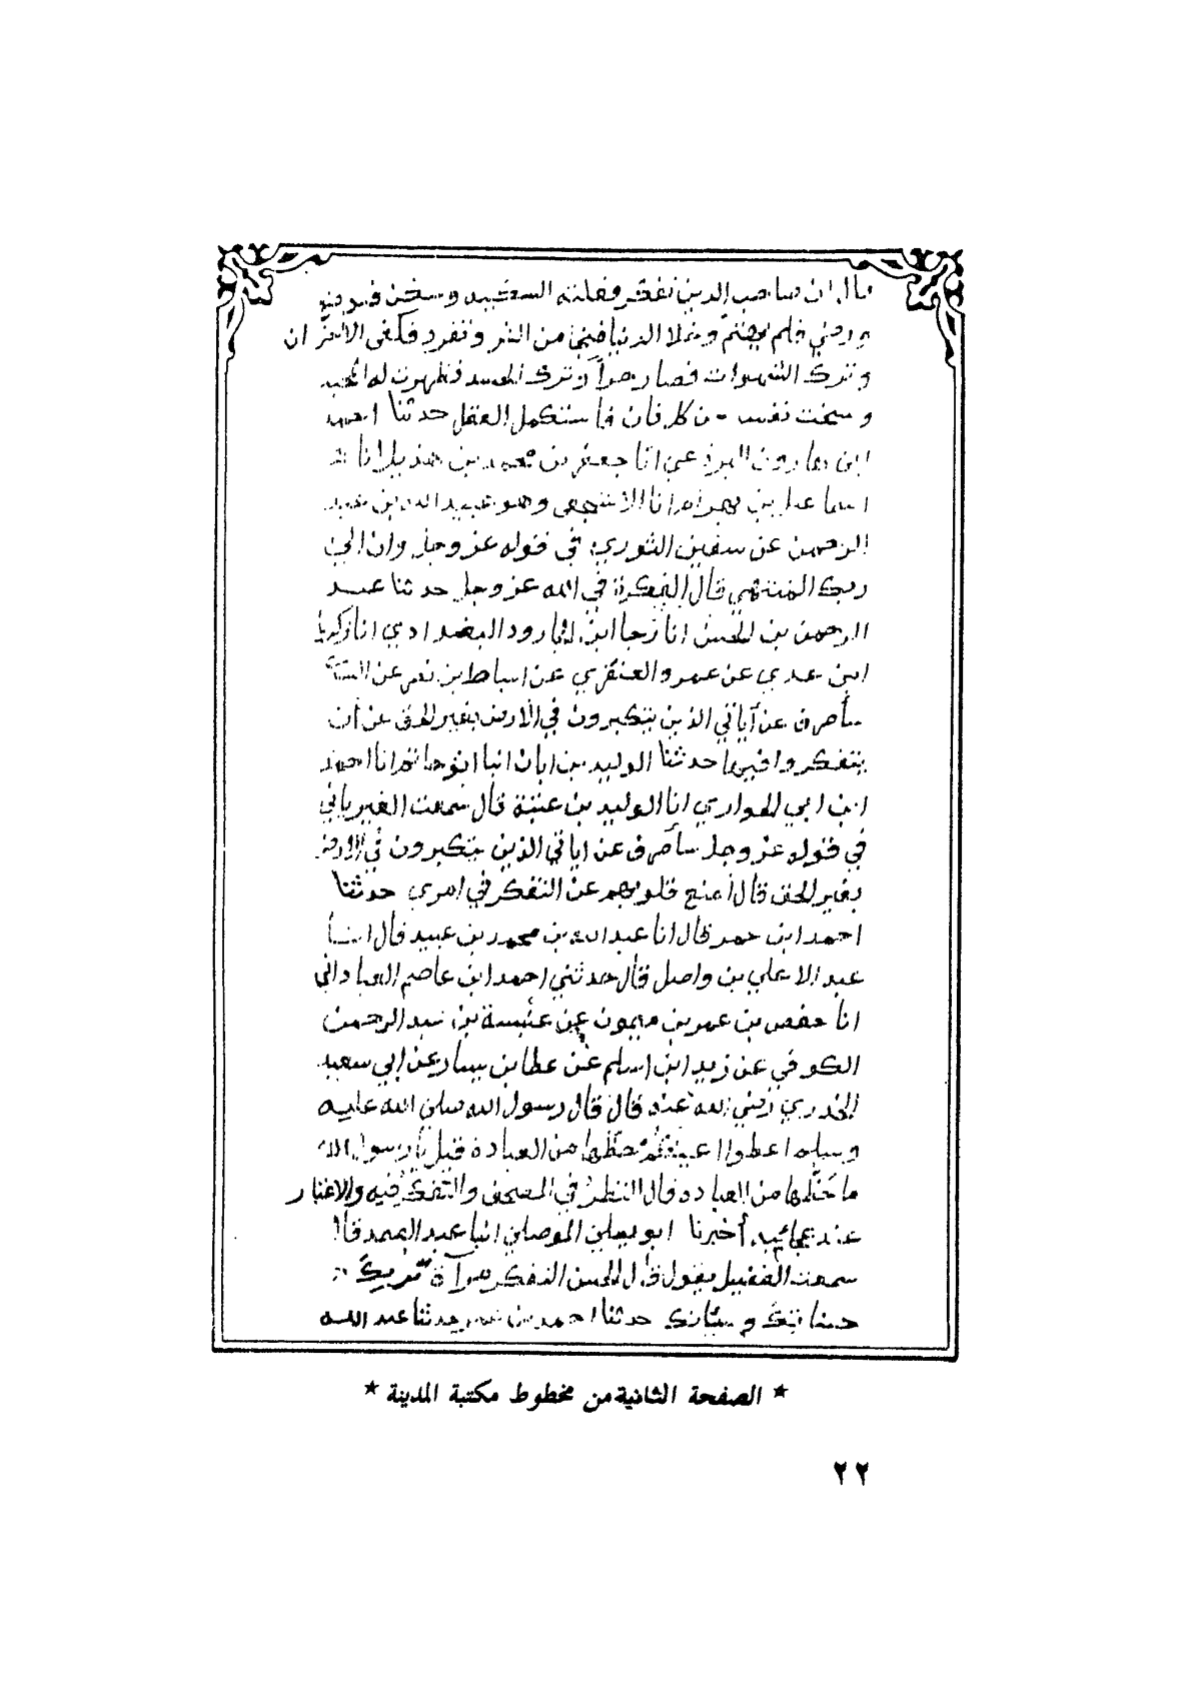 قال ان صاحب الدين تفكر فعلته السكينه وسكن
ورضي فلم يهتم وخلا الدنيا فنجا من الشر وتفرد فكفى الاحزان
وترك الشهوات فصار حرا وترك الحسد فظهرت له المحبه
وسخت نفسه عن كل فان فاستكمل العقل حدثنا احمد
ابن هارون البرذعي انا جعفر بن محمد بن هذيل انا
اسماعيل بن بهرام انا الاشجعي وهو عبيد الله بن عبيد
الرحمن عن سفين الثوري في قوله عز وجل وان الى
ربك المنتهي قال الفكرة في الله عز وجل حدثنا عبد
الرحمن بن الحسن انا رجا ابن الجارود البغدادي انا زكريا
ابن عدي عن عمرو العنقزي عن اسباط بن نصر عن السدي
سأصرف عن آياتي الذين يتكبرون في الارض بغير الحق عن ان
يتفكروا فيها حدثنا الوليد بن ابان انبا ابو حاتم انا احمد
ابن ابي الحواري انا الوليد بن عتبة قال سمعت الفيريابي
في قوله عز وجل سأصرف عن اياتي الذين يتكبرون في الارض
بغير الحق قال أمنع قلوبهم عن التفكر في امري حدثنا
احمد ابن عمر قال انا عبد الله بن محمد بن عبيد قال انبأ
عبد الاعلي بن واصل قال حدثني احمد ابن عاصم العباداني
انا حفص بن عمر بن ميمون عن عنبسة بن عبد الرحمن
الكوفي عن زيد ابن اسلم عن عطا بن يسار عن ابي سعيد
الخدري رضي الله عنه قال قال رسول الله صلى الله عليه
وسلم اعطوا اعينكم حظها من العبادة قيل يا رسول الله
ما حظها من العباده قال النظر في المصحف والتفكر فيه والاعتبار
عند عجائبه أخبرنا ابو يعلى الموصلي انبا عبد الصمد قال
سمعت الفضيل يقول قال الحسن التفكر مرآة تريك
حسناتك وسيئاتك حدثنا احمد بن عمر حدثنا عبد الله
* الصفحة الثانية من مخطوط مكتبة المدينة *
٢٢